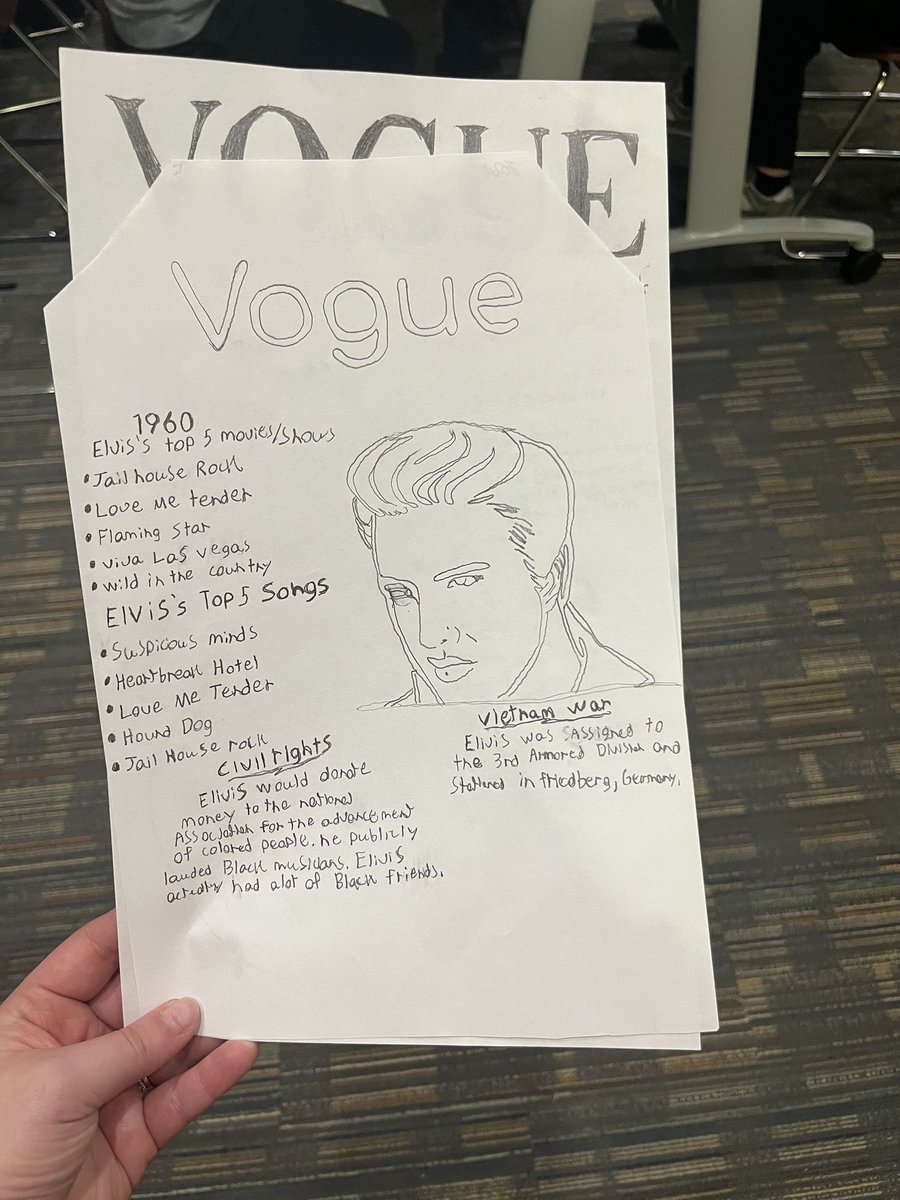 VOGUE
Vogue
1960
Elvis's top 5 movies/shows
• Jail house Rock
• Love Me tender
• Flaming Star
• viva Las vegas
• wild in the country
Elvis's Top 5 Songs
• Suspicious minds
• Heartbreak Hotel
• Love Me Tender
• Hound Dog
• Jail House rock
civil rights
Elivis would donate
money to the national
Association for the advancement
of colored people. he publicly
lauded Black musicians. Elivis
actedly had alot of Black friends.
Vietnam War
Elivis was SAssigned to
the 3rd Armored Division and
Stationed in friedberg, Germany.